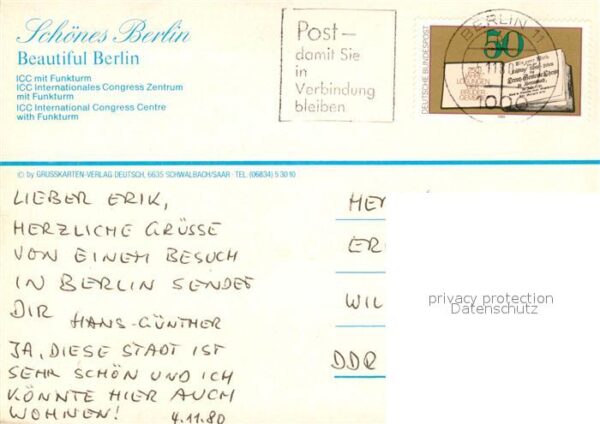 Schönes Berlin
Beautiful Berlin
ICC mit Funkturm
ICC Internationales Congress Zentrum
mit Funkturm
ICC International Congress Centre
with Funkturm
Post –
damit Sie
in
Verbindung
bleiben
BERLIN 11
1000
DEUTSCHE BUNDESPOST
50
© by GRUSSKARTEN-VERLAG DEUTSCH, 6635 SCHWALBACH/SAAR · TEL. (06834) 53010
LIEBER ERIK,
HERZLICHE GRÜSSE
VON EINEM BESUCH
IN BERLIN SENDET
DIR HANS-GÜNTHER
JA, DIESE STADT IST
SEHR SCHÖN UND ICH
KÖNNTE HIER AUCH
WOHNEN! 4.11.80
ER
WIL
DDR
privacy protection
Datenschutz